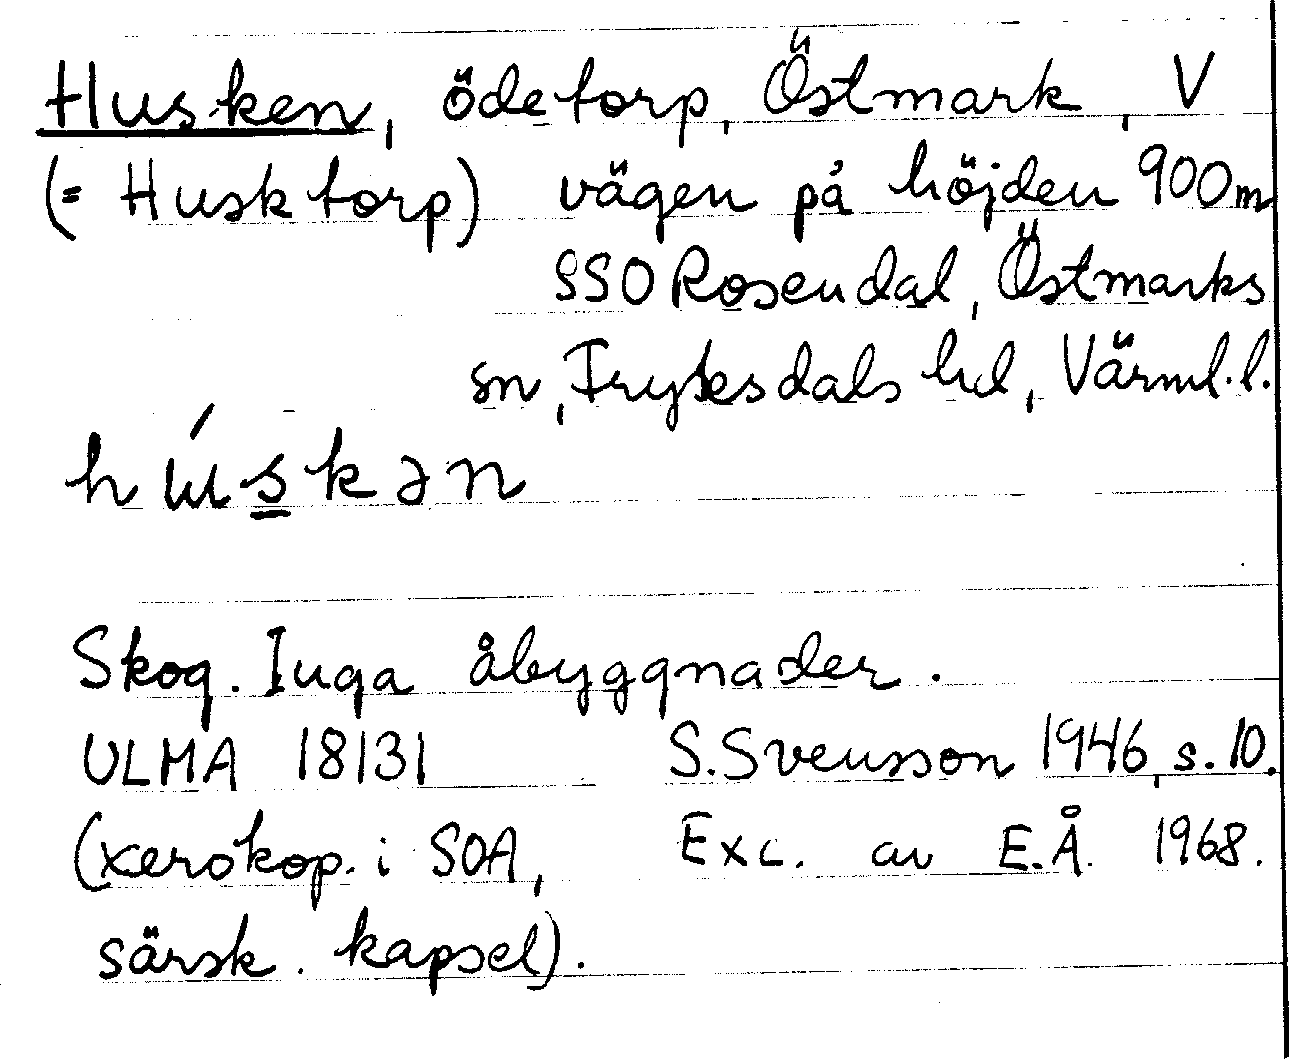 Husken, ödetorp, Östmark, V
(= Husktorp) vägen på höjden 900m
SSO Rosendal, Östmarks
sn, Fryksdals hd, Värml. l.
húskən
Skog. Inga åbyggnader.
ULMA 18131 S. Svensson 1946, s. 10.
(xerokop. i SOA, Exc. av E.Å. 1968.
särsk. kapsel).